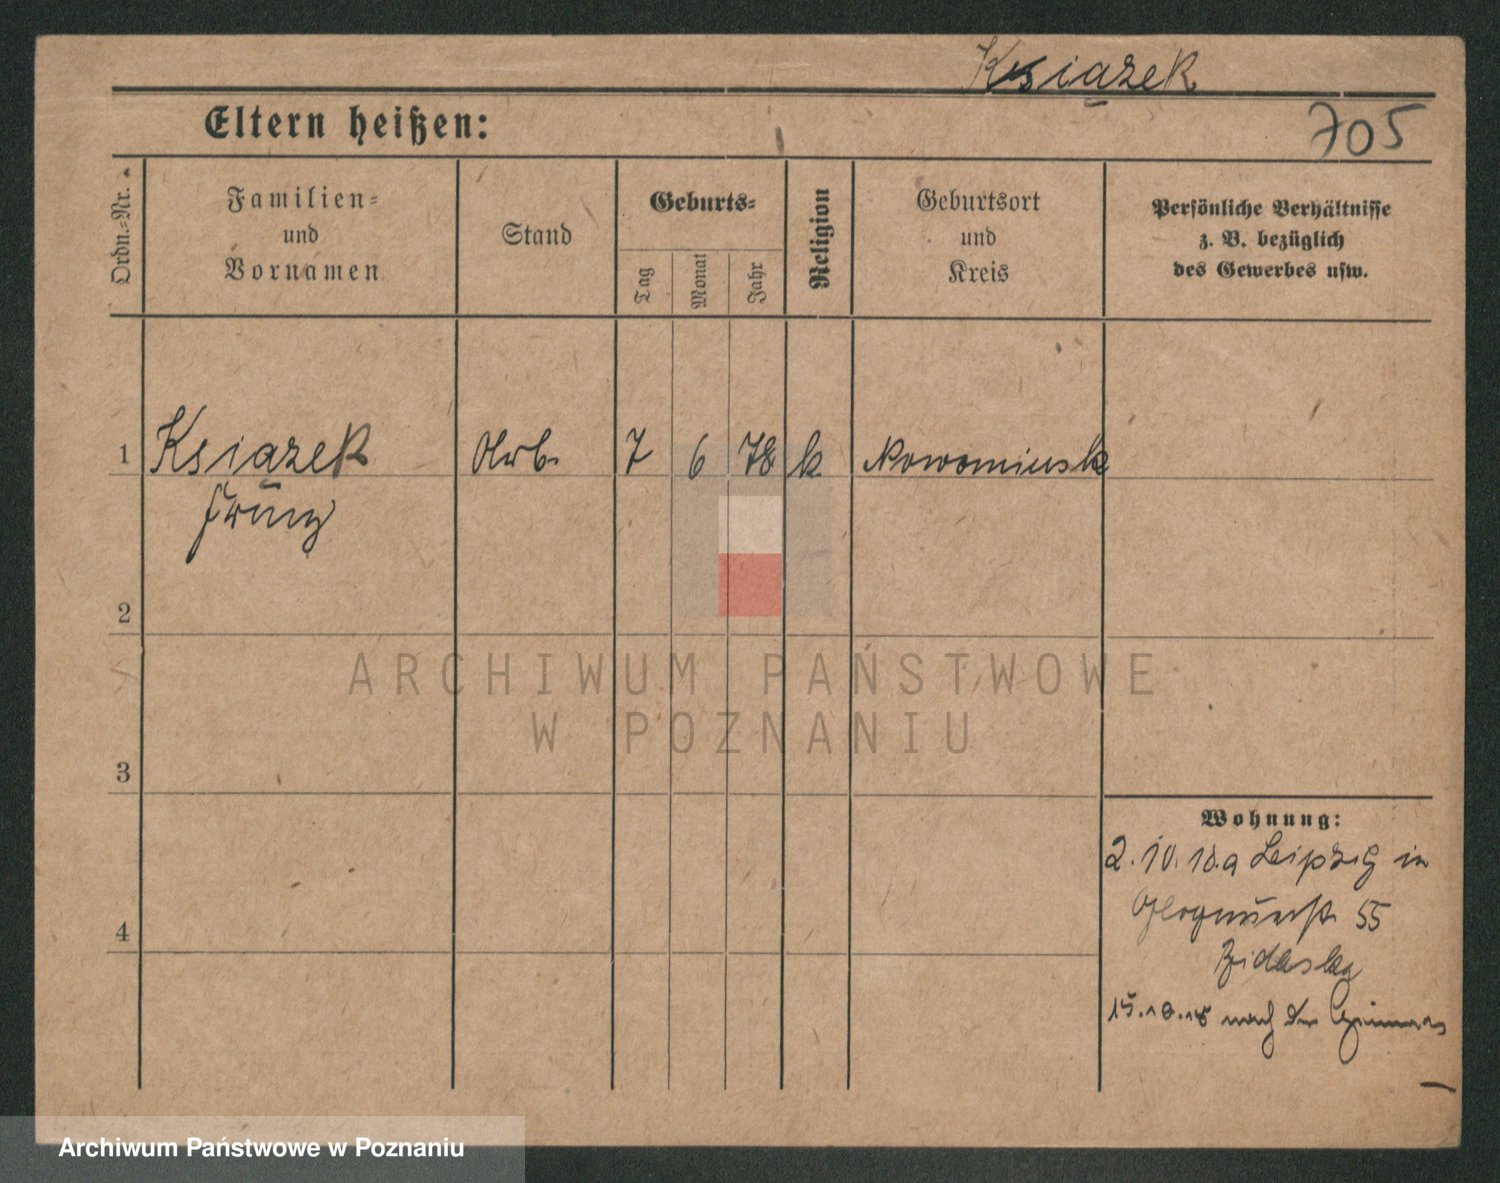 Książek
705
Eltern heißen:
Ordn.-Nr.
Familien=
und
Vornamen
Stand
Geburts=
Tag
Monat
Jahr
Religion
Geburtsort
und
Kreis
Persönliche Verhältnisse
z. B. bezüglich
des Gewerbes usw.
1 Książek Arb. 7 6 78 k Nowominsk
Franz
2
3
4
Wohnung:
2.10.18.a Leipzig in
55
15.10.18 nach
ARCHIWUM PAŃSTWOWE
W POZNANIU
Archiwum Państwowe w Poznaniu